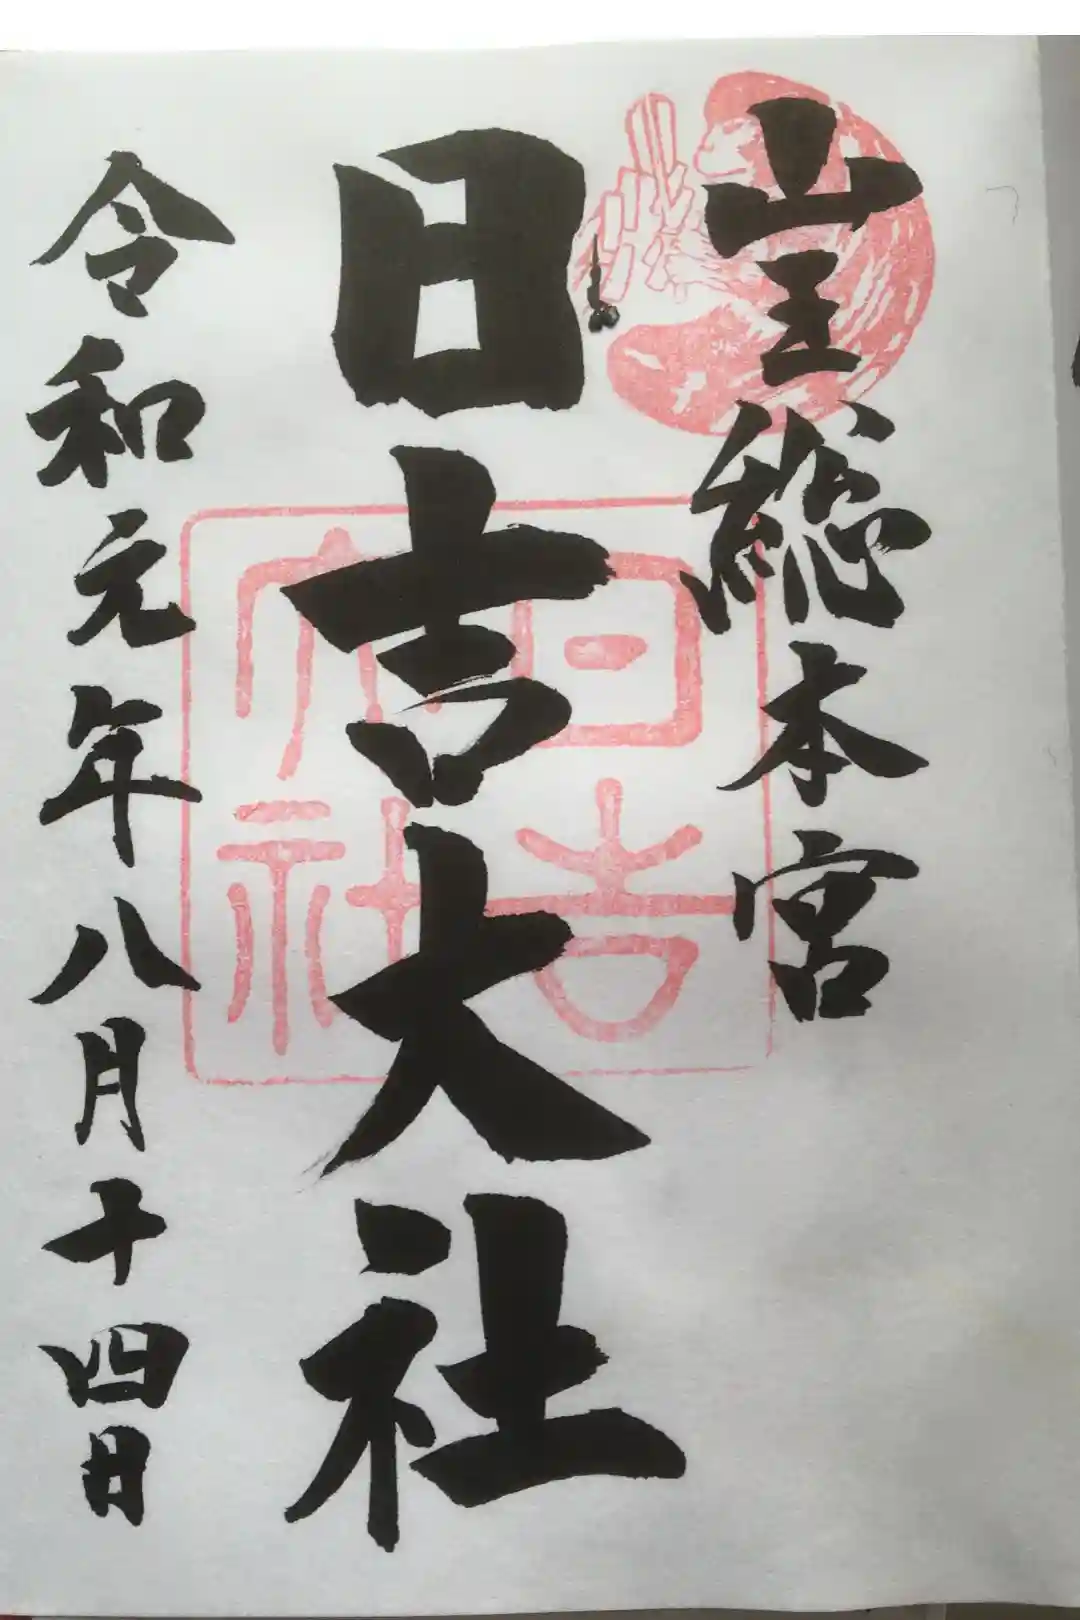 山王総本宮
日吉大社
日吉大社
令和元年八月十四日